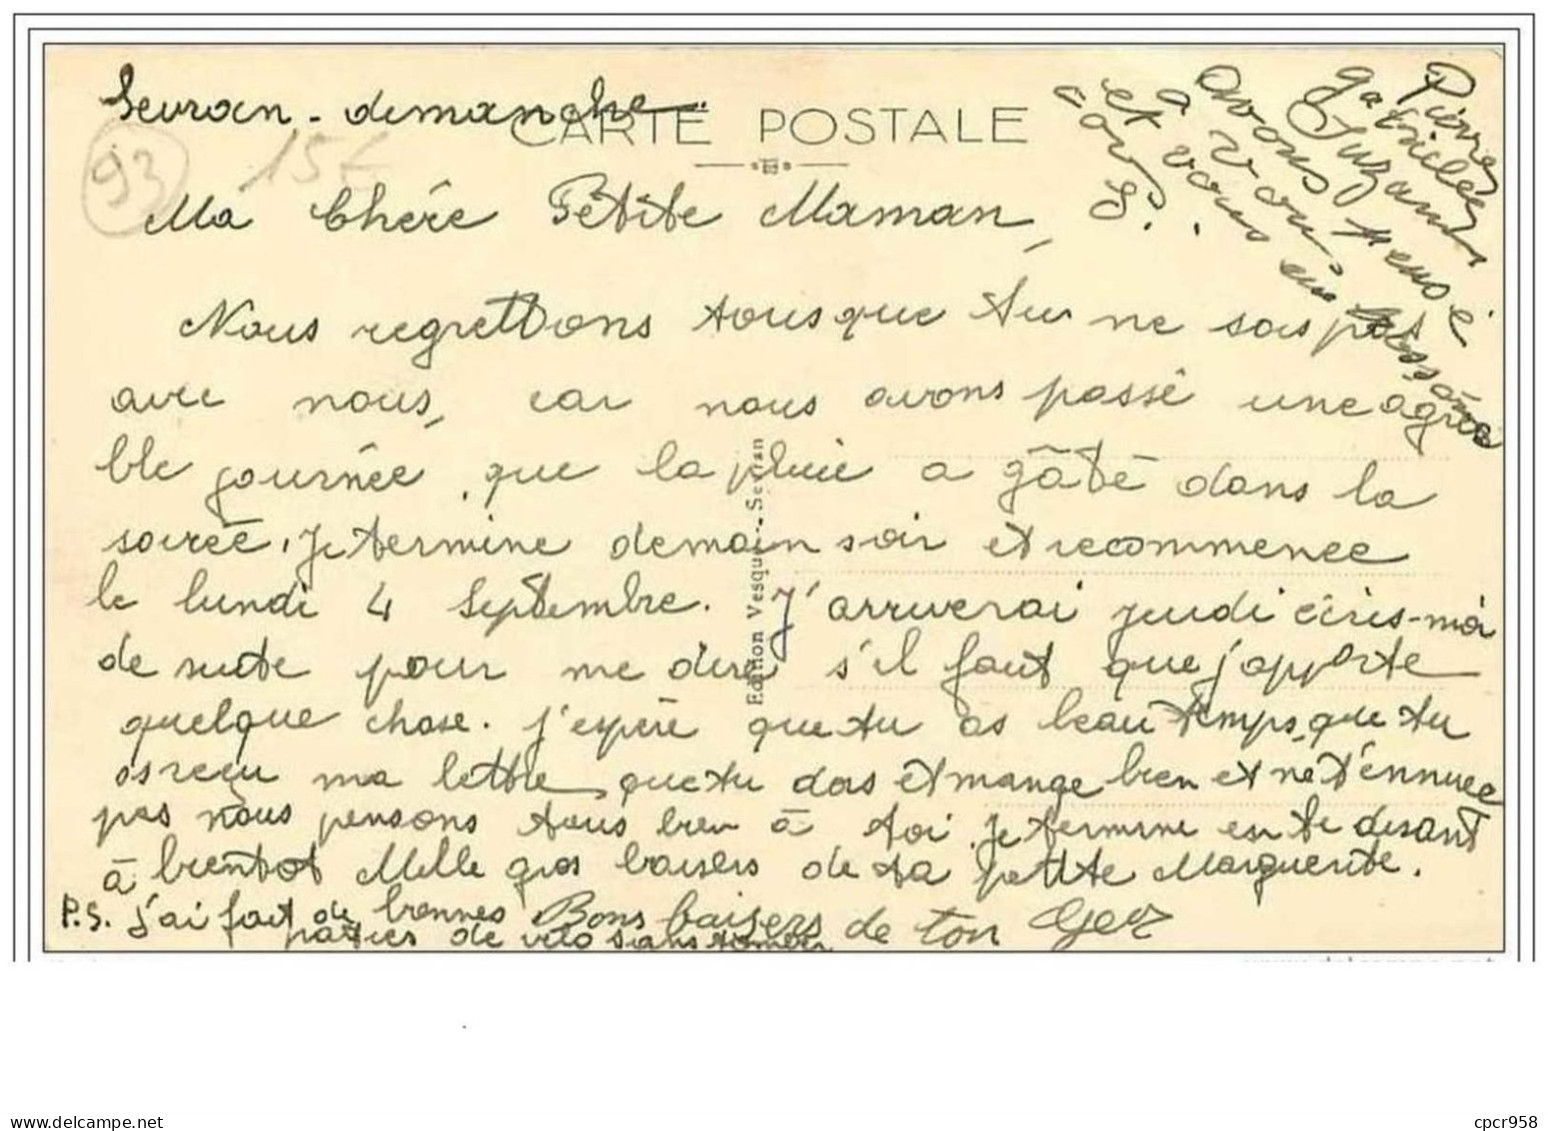 Sevran - dimanche
CARTE POSTALE
93
15€
Pierre
gabrielle
Suzanne
avons pensé
a vous
et vous embrassons
à vous
S.
Ma Chére Petite Maman,
Nous regrettons tous que tu ne sois pas
avec nous, car nous avons passé une agréa
ble journée, que la pluie a gâté dans la
soirée. Je termine demain soir et recommence
le lundi 4 Septembre. J'arriverai jeudi écris-moi
de suite pour me dire s'il faut que j'apporte
quelque chose. J'espère que tu as beau temps, que tu
as reçu ma lettre, que tu dors et mange bien et ne t'ennuie
pas nous pensons tous bien à toi. Je termine en te disant
à bientôt Mille gros baisers de ta petite Marguerite.
P.S. j'ai fait de bonnes Bons baisers de ton
parties de vélo sans tomber
Edition Vesque - Sevran
cpcr958